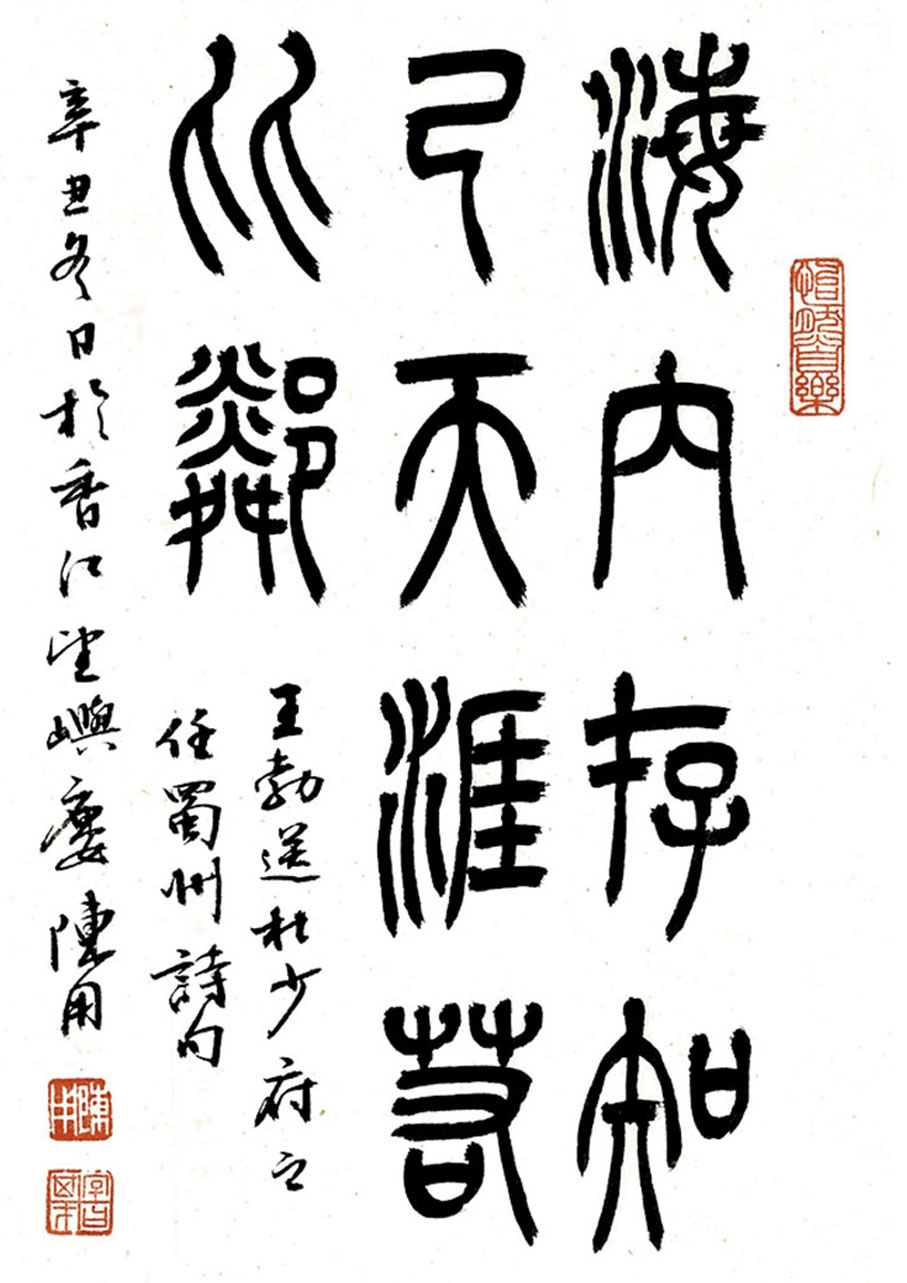 怡然自樂
海内存知
己天涯若
比鄰
王勃送杜少府之
任蜀州詩句
辛丑冬日於香江望嶼廔陳用
陳用